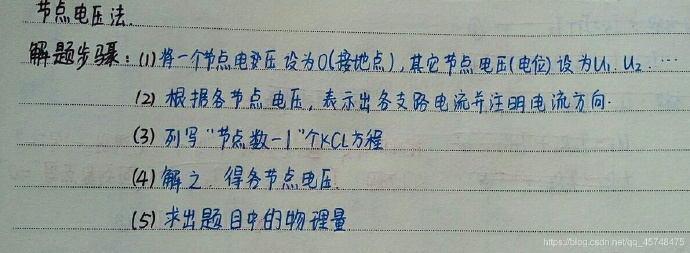 节点电压法.
解题步骤：(1)将一个节点电压设为0(接地点)，其它节点电压(电位)设为U₁. U₂. …
(2) 根据各节点电压，表示出各支路电流并注明电流方向.
(3) 列写"节点数-1"个KCL方程
(4) 解之. 得各节点电压.
(5) 求出题目中的物理量
https://blog.csdn.net/qq_45748475